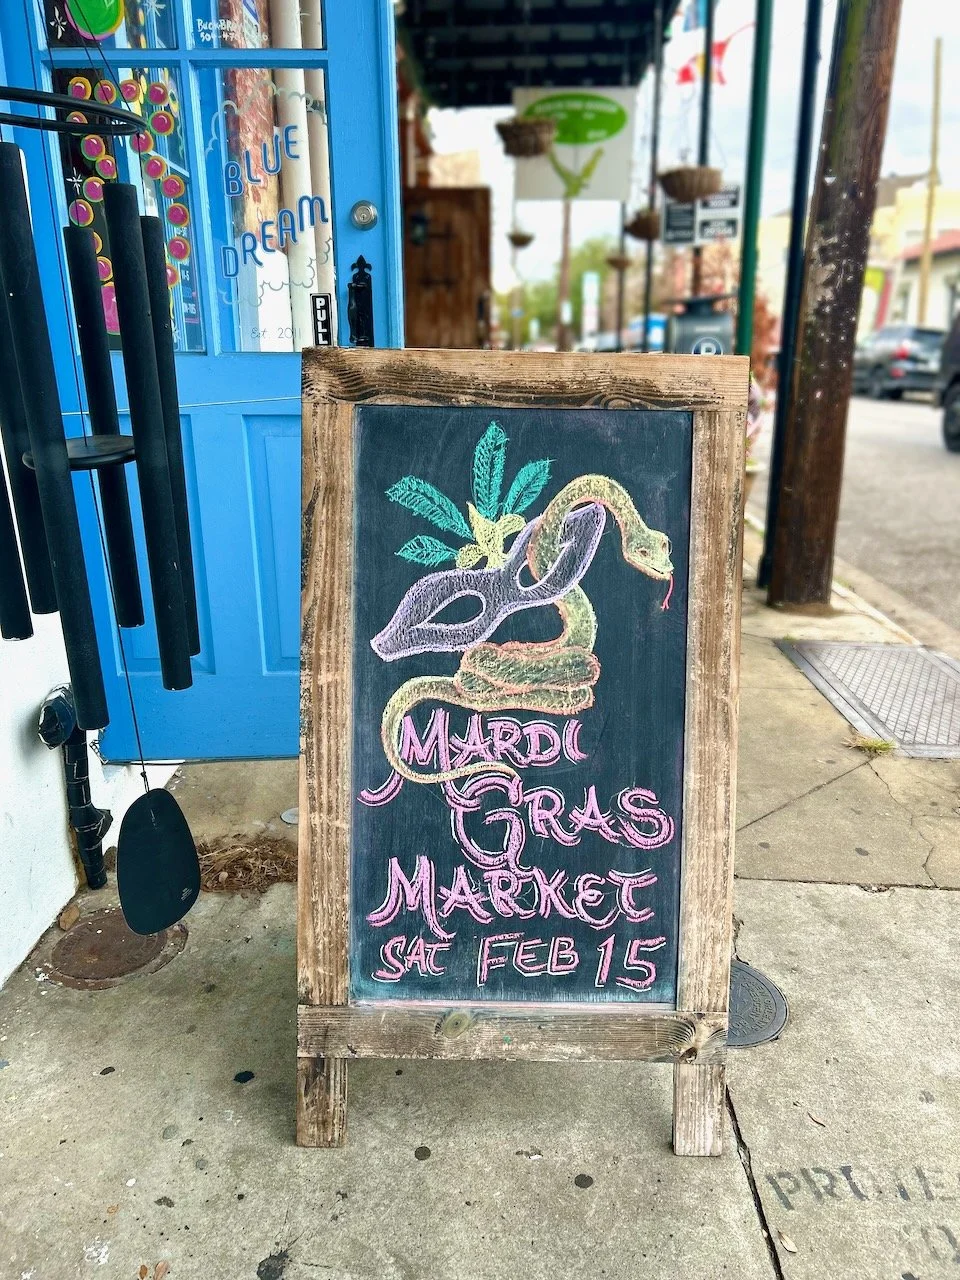 BLUE
DREAM
Est. 201
PULL
MARDI
GRAS
MARKET
SAT FEB 15
PROTE